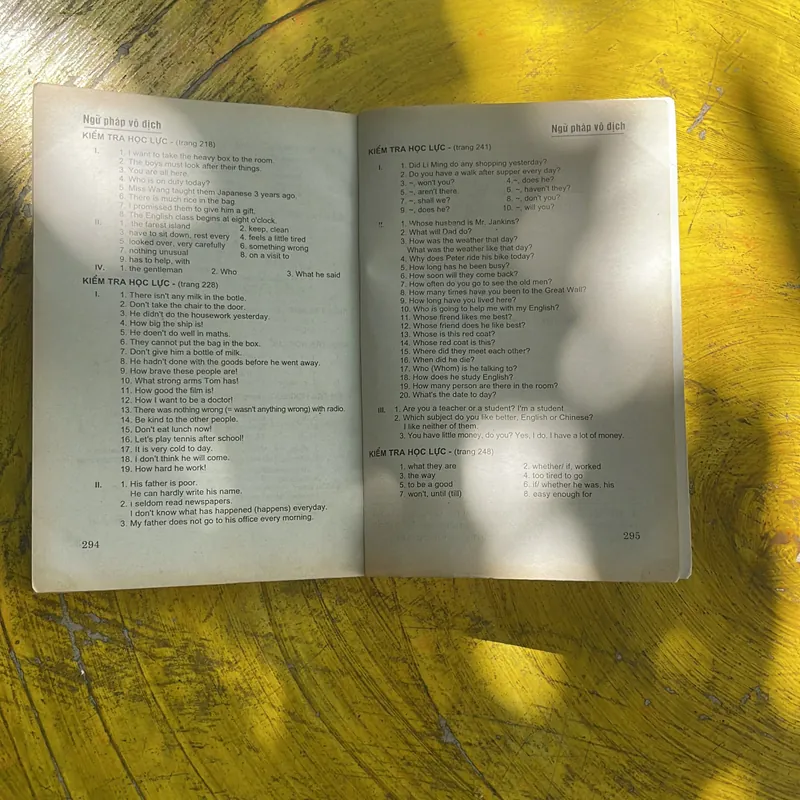 Ngữ pháp vô địch
KIỂM TRA HỌC LỰC - (trang 218)
I. 1. I want to take the heavy box to the room.
2. The boys must look after their things.
3. You are all here.
4. Who is on duty today?
5. Miss Wang taught them Japanese 3 years ago.
6. There is much rice in the bag.
7. I promissed them to give him a gift.
8. The English class begins at eight o'clock.
II. 1. the farest island 2. keep, clean
3. have to sit down, rest every 4. feels a little tired
5. looked over, very carefully 6. something wrong
7. nothing unusual 8. on a visit to
9. has to help, with
IV. 1. the gentleman 2. Who 3. What he said
KIỂM TRA HỌC LỰC - (trang 228)
I. 1. There isn't any milk in the botle.
2. Don't take the chair to the door.
3. He didn't do the housework yesterday.
4. How big the ship is!
5. He doen't do well in maths.
6. They cannot put the bag in the box.
7. Don't give him a bottle of milk.
8. He hadn't done with the goods before he went away.
9. How brave these people are!
10. What strong arms Tom has!
11. How good the film is!
12. How I want to be a doctor!
13. There was nothing wrong (= wasn't anything wrong) with radio.
14. Be kind to the other people.
15. Don't eat lunch now!
16. Let's play tennis after school!
17. It is very cold to day.
18. I don't think he will come.
19. How hard he work!
II. 1. His father is poor.
He can hardly write his name.
2. I seldom read newspapers.
I don't know what has happened (happens) everyday.
3. My father does not go to his office every morning.
294
Ngữ pháp vô địch
KIỂM TRA HỌC LỰC - (trang 241)
I. 1. Did Li Ming do any shopping yesterday?
2. Do you have a walk after supper every day?
3. ~, won't you? 4. ~, does he?
5. ~, aren't there. 6. ~, haven't they?
7. ~, shall we? 8. ~, don't you?
9. ~, does he? 10. ~, will you?
II. 1. Whose husband is Mr. Jankins?
2. What will Dad do?
3. How was the weather that day?
What was the weather like that day?
4. Why does Peter ride his bike today?
5. How long has he been busy?
6. How soon will they come back?
7. How often do you go to see the old men?
8. How many times have you been to the Great Wall?
9. How long have you lived here?
10. Who is going to help me with my English?
11. Whose firend likes me best?
12. Whose friend does he like best?
13. Whose is this red coat?
14. Whose red coat is this?
15. Where did they meet each other?
16. When did he die?
17. Who (Whom) is he talking to?
18. How does he study English?
19. How many person are there in the room?
20. What's the date to day?
III. 1. Are you a teacher or a student? I'm a student.
2. Which subject do you like better, English or Chinese?
I like neither of them.
3. You have little money, do you? Yes, I do. I have a lot of money.
KIỂM TRA HỌC LỰC - (trang 248)
1. what they are 2. whether/ if, worked
3. the way 4. too tired to go
5. to be a good 6. if/ whether he was, his
7. won't, until (till) 8. easy enough for
295